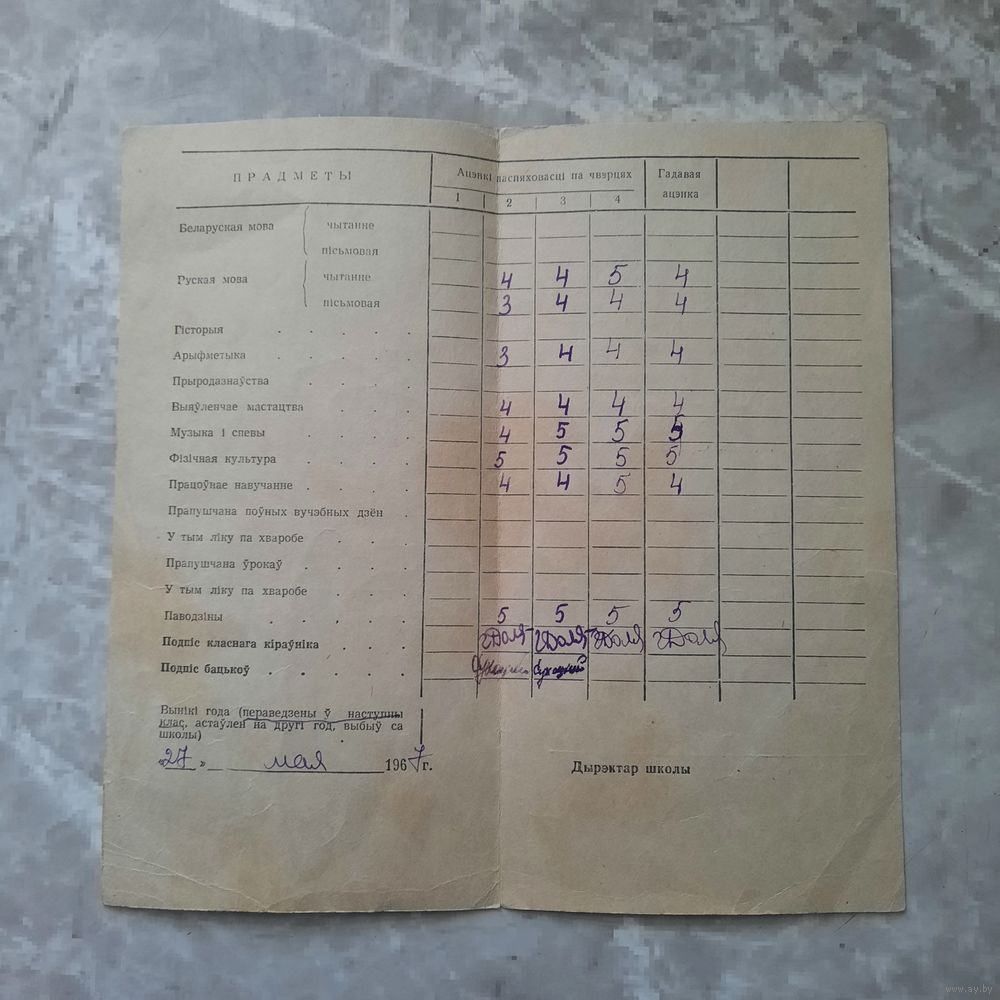 ПРАДМЕТЫ Ацэнкі паспяховасці па чвэрцях Гадавая ацэнка
1 2 3 4
Беларуская мова чытанне
пісьмовая
Руская мова чытанне 4 4 5 4
пісьмовая 3 4 4 4
Гісторыя . . . . .
Арыфметыка . . . . 3 4 4 4
Прыродазнаўства . . . .
Выяўленчае мастацтва . . . 4 4 4 4
Музыка і спевы . . . . 4 5 5 5
Фізічная культура . . . . 5 5 5 5
Працоўнае навучанне . . . . 4 4 5 4
Прапушчана поўных вучэбных дзён .
У тым ліку па хваробе . . .
Прапушчана ўрокаў . . . .
У тым ліку па хваробе . . .
Паводзіны . . . . . 5 5 5 5
Подпіс класнага кіраўніка . . .
Подпіс бацькоў . . . . .
Вынікі года (пераведзены ў наступны
клас, астаўлен на другі год, выбыў са
школы)
"27" мая 1967 г. Дырэктар школы
www.ay.by